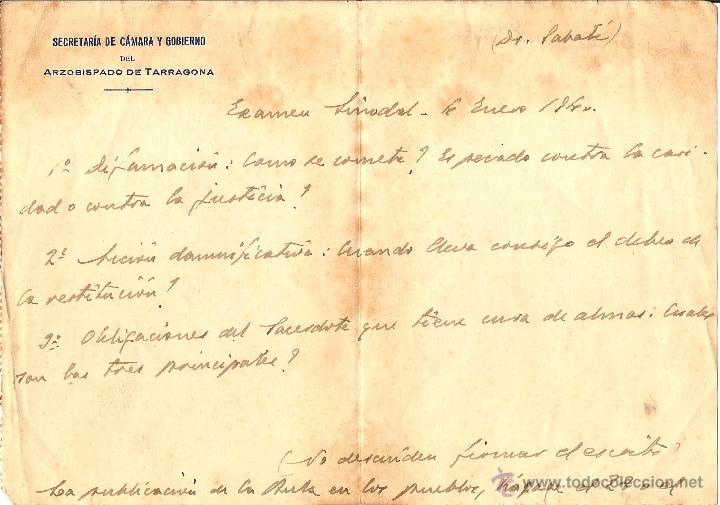 SECRETARÍA DE CÁMARA Y GOBIERNO
DEL
ARZOBISPADO DE TARRAGONA
(Dr. Sabaté)
Examen Sinodal - Enero
1º Difamación: Como se comete? Es pecado contra la cari-
dad o contra la justicia?
2º Acción damnificativa: Cuando lleva consigo el deber de
la restitución?
3º Obligaciones del Sacerdote que tiene cura de almas: Cuales
son las tres principales?
(No descuiden firmar el escrito)
La publicación de la Bula en los pueblos, hágase el
www.todocoleccion.net